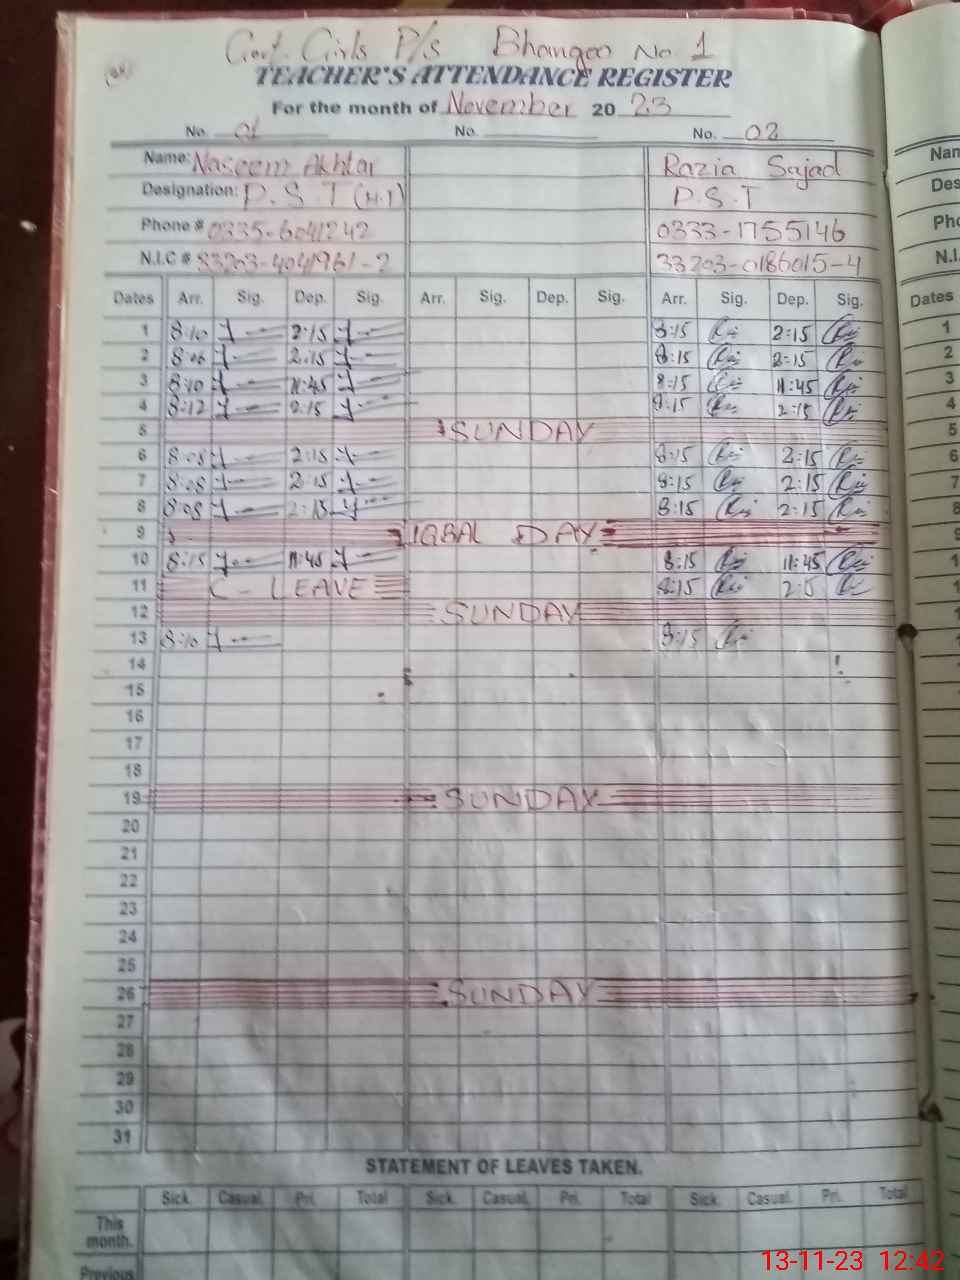 Govt. Girls P/s Bhangoo No 1
TEACHER'S ATTENDANCE REGISTER
For the month of November 20 23
No. 01 No. No. 02
Name: Naseem Akhtar Razia Sajad
Designation: P.S.T (H.T) P.S.T
Phone # 0335-6041242 0333-1755146
N.I.C # 33203-4041961-2 33203-0186015-4
Dates Arr. Sig. Dep. Sig. Arr. Sig. Dep. Sig. Arr. Sig. Dep. Sig.
1 8:10 2:15 8:15 2:15
2 8:06 2:15 8:15 2:15
3 8:10 11:45 8:15 11:45
4 8:12 2:15 8:15 2:15
5 SUNDAY
6 8:08 2:15 8:15 2:15
7 8:08 2:15 8:15 2:15
8 8:08 2:15 8:15 2:15
9 IQBAL DAY
10 8:15 11:45 8:15 11:45
11 C - LEAVE 8:15
12 SUNDAY
13 8:10 8:15
14
15
16
17
18
19 SUNDAY
20
21
22
23
24
25
26 SUNDAY
27
28
29
30
31
STATEMENT OF LEAVES TAKEN.
Sick. Casual. Pri. Total Sick. Casual. Pri. Total Sick. Casual. Pri. Total
This
month.
Previous
Nam
Des
Pho
N.I.
Dates
1
2
3
4
5
6
7
8
9
13-11-23 12:42